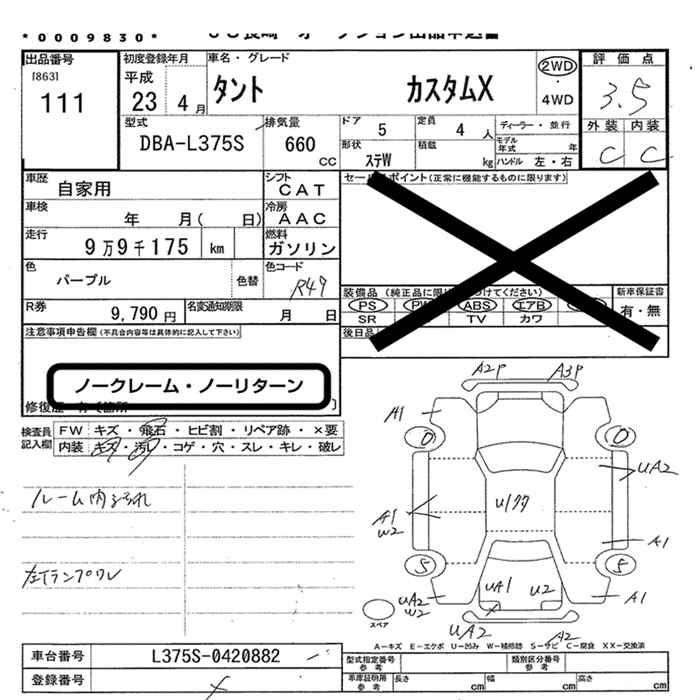 *0009830*
ＪＵ長崎 オークション出品申込書
出品番号
[863]
111
初度登録年月
平成
23 4月
車名・グレード
タント カスタムX
2WD
・
4WD
評価点
3.5
外装 内装
C C
型式
DBA-L375S
排気量
660
CC
ドア
5
定員
4人
形状
ステW
積載
kg
ディーラー・並行
モデル年式 年
ハンドル 左・右
車歴
自家用
シフト
CAT
セールスポイント(正常に機能するものに限ります)
車検
年 月( 日)
冷房
AAC
走行
9万9千175 km
燃料
ガソリン
色
パープル
色替
色コード
R49
装備品 (純正品に限
つけてください)
PS PW ABS エアB
SR TV カワ
新車保証書
有・無
R券
9,790円
名変通知期限
月 日
後日品
注意事項申告欄(不具合内容等は具体的に記入して下さい)
ノークレーム・ノーリターン
修復歴
検査員記入欄
FW キズ・飛石・ヒビ割・リペア跡・×要
内装 キズ・汚レ・コゲ・穴・スレ・キレ・破レ
ルーム内よごれ
左Tランプワレ
A2P A3P
A1
0 0
UA2
A1
W2
A1
5 5
UA1 U2
UA2
W2
A1
スペア
UA2 A2
A－キズ E－エクボ U－凹み W－補修跡 S－サビ C－腐食 XX－交換済
車台番号
L375S-0420882
登録番号
型式指定番号
参考
類別区分番号
参考
車庫証明用
参考
長さ cm
幅 cm
高さ cm